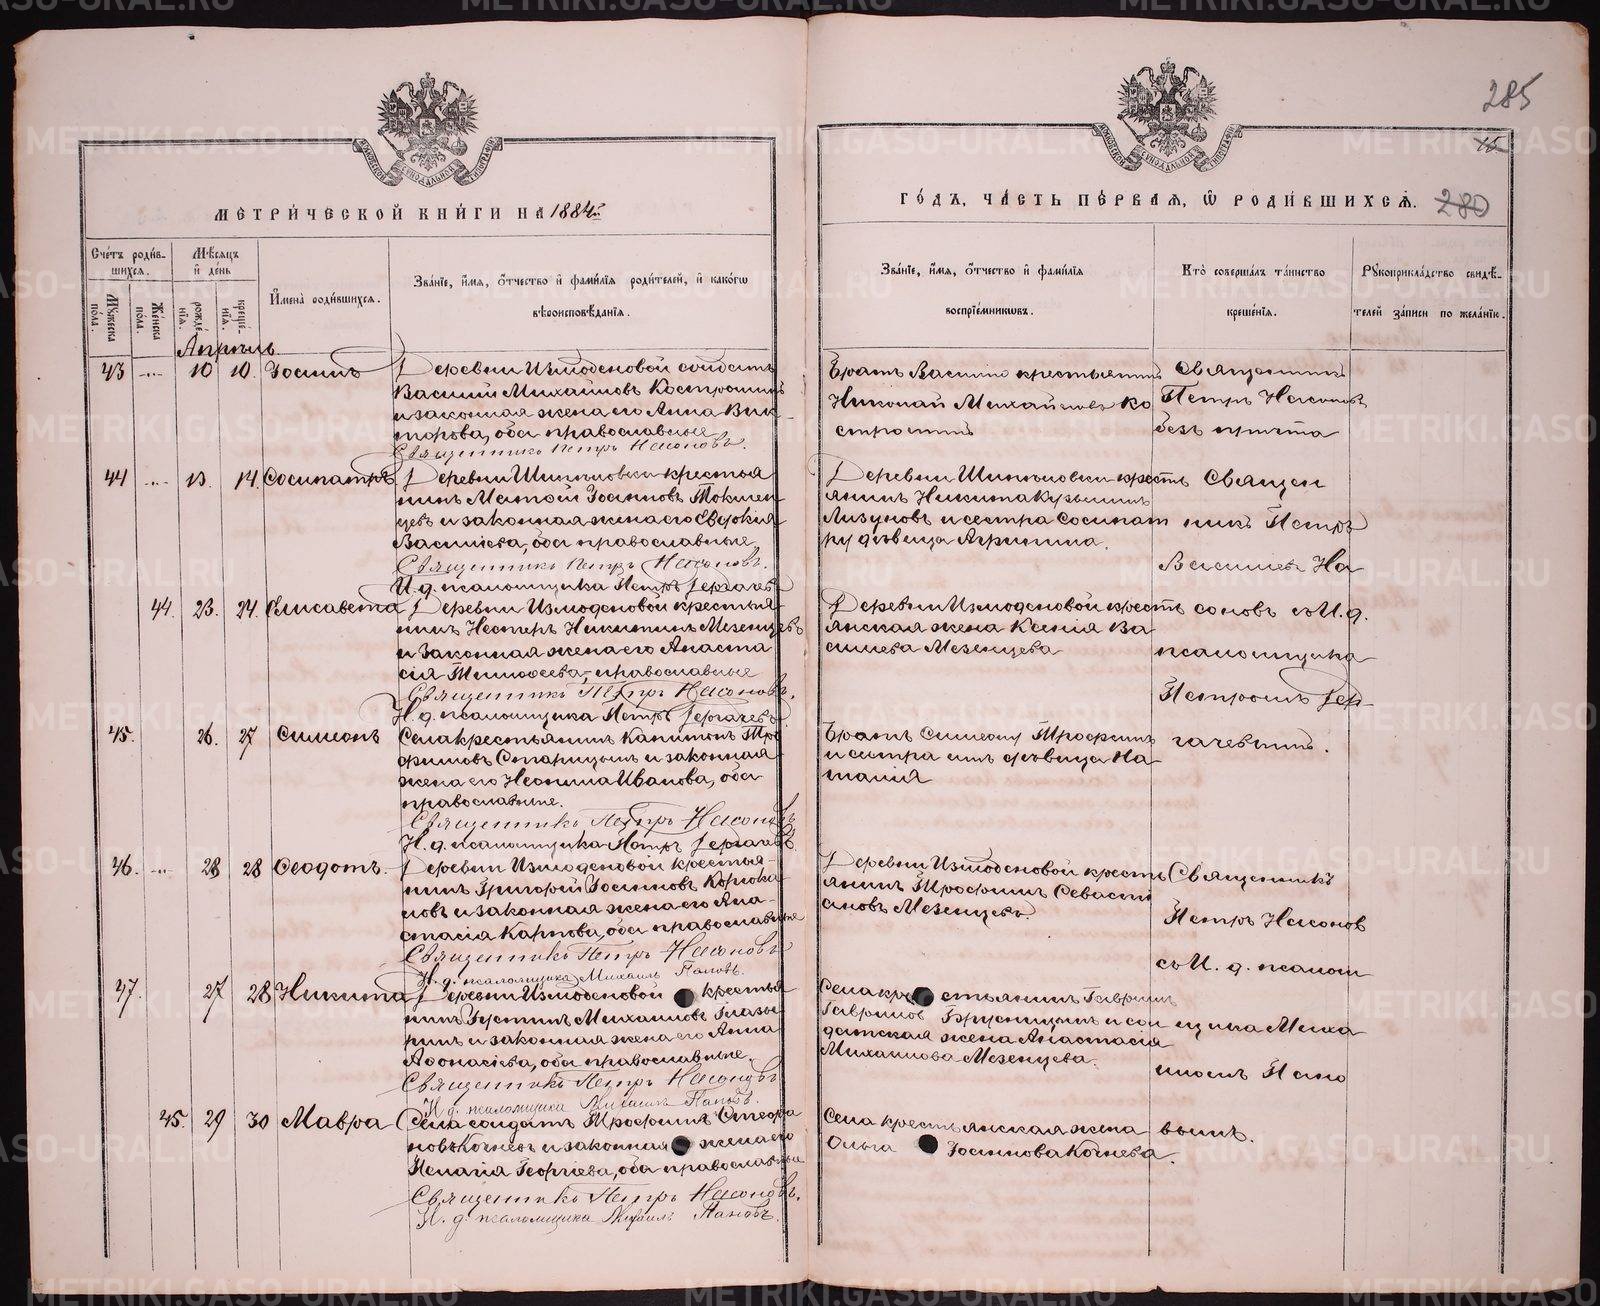 285
15
МЕТРИ́ЧЕСКОЙ КНИ́ГИ НА 1884й
ГО́ДЪ, ЧА́СТЬ ПЕ́РВАЯ, Ѿ РОДИ́ВШИХСѦ.
280
Сче́тъ роди́вшихся.
Мѣ́сяцъ и де́нь
Му́жеска по́ла.
Же́нска по́ла.
рожде́нїя.
креще́нїя.
И҆мена̀ роди́вшихся.
Зва́нїе, и҆́мя, ѻ҆́тчество и҆ фами́лїя роди́телей, и҆ како́гѡ
вѣроисповѣ́данїя.
Зва́нїе, и҆́мя, ѻ҆́тчество и҆ фами́лїя
воспрїе́мникѡвъ.
Кто̀ соверша́лъ та́инство
креще́нїя.
Рꙋкоприкла́дство свидѣ́-
телей за́писи по жела́нїю.
Апрѣль.
43 ... 10 10. Іоаннъ
Деревни Измоденовой солдатъ
Василий Михайловъ Костромин
и законная жена его Анна Вик
торова, оба православные
Священникъ Петръ Насоновъ.
Братъ Василию крестьянинъ
Николай Михайловъ Ко
стромин
Священникъ
Петръ Насоновъ
безъ причта
44 ... 13. 14. Сосипатръ
крестья
нинъ Іоанновъ
и законная жена его Евдокия
Васильева, оба православные
Священникъ Петръ Насоновъ.
И. д. псаломщика Петръ Дергачевъ
крестъ
янинъ Никита Кузьминъ
Лизуновъ и сестра Сосипат
ру дѣвица Агрипина.
Священ
никъ Петръ
Васильевъ На
44. 23. 24. Елисавета
Деревни Измоденовой крестья
нинъ Нестеръ Никитинъ Мезенцевъ
и законная жена его Анаста
сія Тимофеева, православные
Священникъ Петръ Насоновъ.
И. д. псаломщика Петръ Дергачевъ
Деревни Измоденовой кресть
янская жена Ксенія Ва
сильева Мезенцева
соновъ съ И. д.
псаломщика
Петромъ Дер
45. 26. 27 Симеонъ
Села крестьянинъ Капитонъ Тро
фимовъ Старицынъ и законная
жена его Неонила Иванова, оба
православные.
Священникъ Петръ Насоновъ
И. д. псаломщика Петръ Дергачевъ.
Братъ Симеону Трофимъ
и сестра имъ дѣвица На
талія
гачевымъ.
46. ... 28 28 Ѳеодотъ.
Деревни Измоденовой крестья-
нинъ Григорій Іоанновъ Корюка
ловъ и законная жена его Ана-
стасія Карпова, оба православные
Священникъ Петръ Насоновъ
И. д. псаломщика Михаилъ Паповъ.
Деревни Измоденовой кресть
янинъ Трофимъ Севасти
ановъ Мезенцевъ.
Священникъ
Петръ Насонов
съ И. д. псалом
47. 27 28 Никита
Деревни Измоденовой крестья
нинъ Густинъ Михаиловъ Глазы
ринъ и законная жена его Анна
Афонасіева, оба православные.
Священникъ Петръ Насоновъ
И. д. псаломщика Михаилъ Паповъ.
Села крестьянинъ Гавриилъ
Гавриловъ Брусницынъ и сол
датская жена Анастасія
Михаилова Мезенцева.
щика Миха
иломъ Папо
45. 29 30 Мавра
Села солдатъ Трофимъ Стефа
новъ Кочневъ и законная жена его
Пелагія Георгиева, оба православные
Священникъ Петръ Насоновъ.
И. д. псаломщика Михаилъ Паповъ.
Села крестьянская жена
Ольга Іоаннова Кочнева.
вымъ.